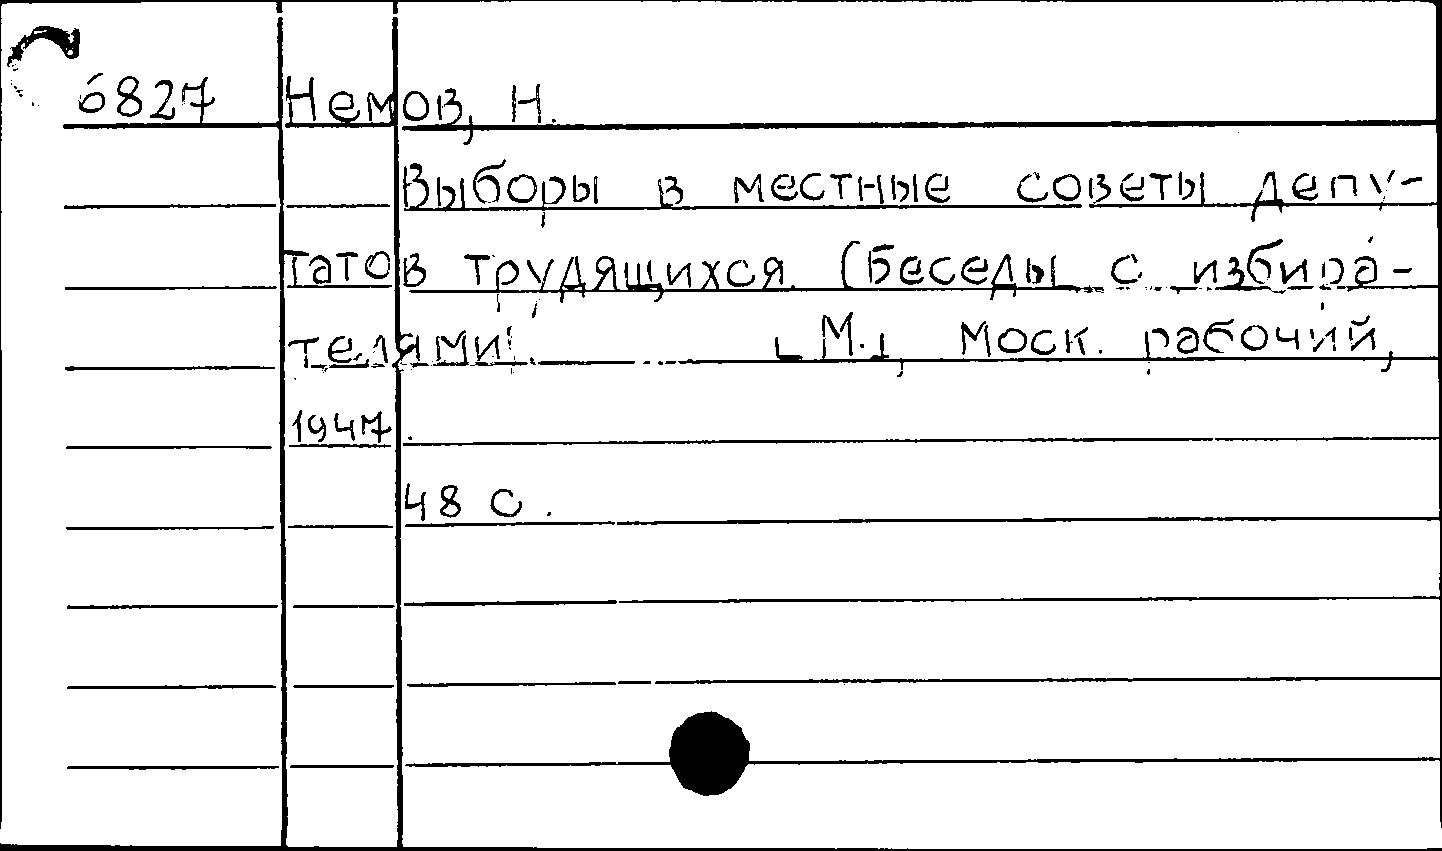 6827 Немов, Н.
Выборы в местные советы депу-
татов трудящихся. (Беседы с избира-
телями). [М.], Моск. рабочий,
1947.
48 с.